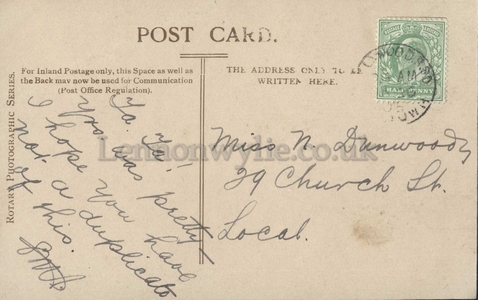 POST CARD.
For Inland Postage only, this Space as well as
the Back may now be used for Communication
(Post Office Regulation).
THE ADDRESS ONLY TO BE
WRITTEN HERE.
ROTARY PHOTOGRAPHIC SERIES.
Ta. Ta!!
Yrs was pretty
I hope you have
not a duplicate
of this.
Miss N. Dunwoody
29 Church St.
Local.
HALFPENNY
Lennonwylie.co.uk